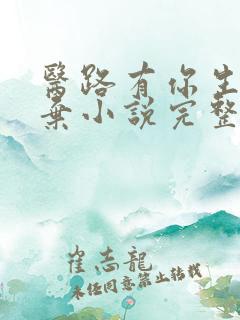 醫路有你生
棄小說完整
崔志龍
未經同意禁止轉載